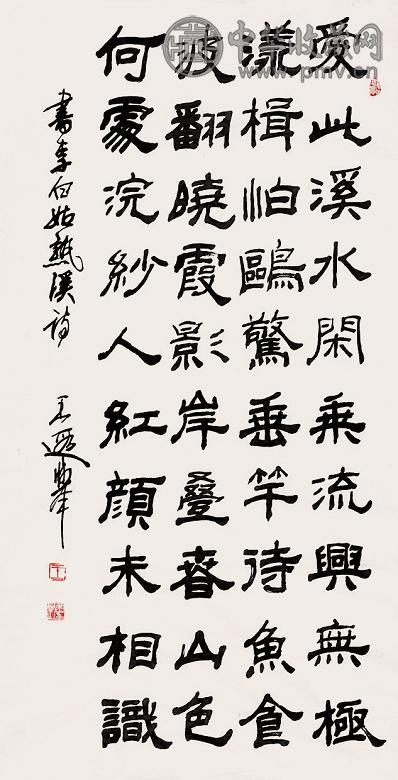 愛此溪水閑乘流興無極
漾楫怕鷗驚垂竿待魚食
波翻曉霞影岸叠春山色
何處浣紗人紅顔未相識
書李白姑熟溪詩
王遐舉
中华收藏网
www.pmv.cn